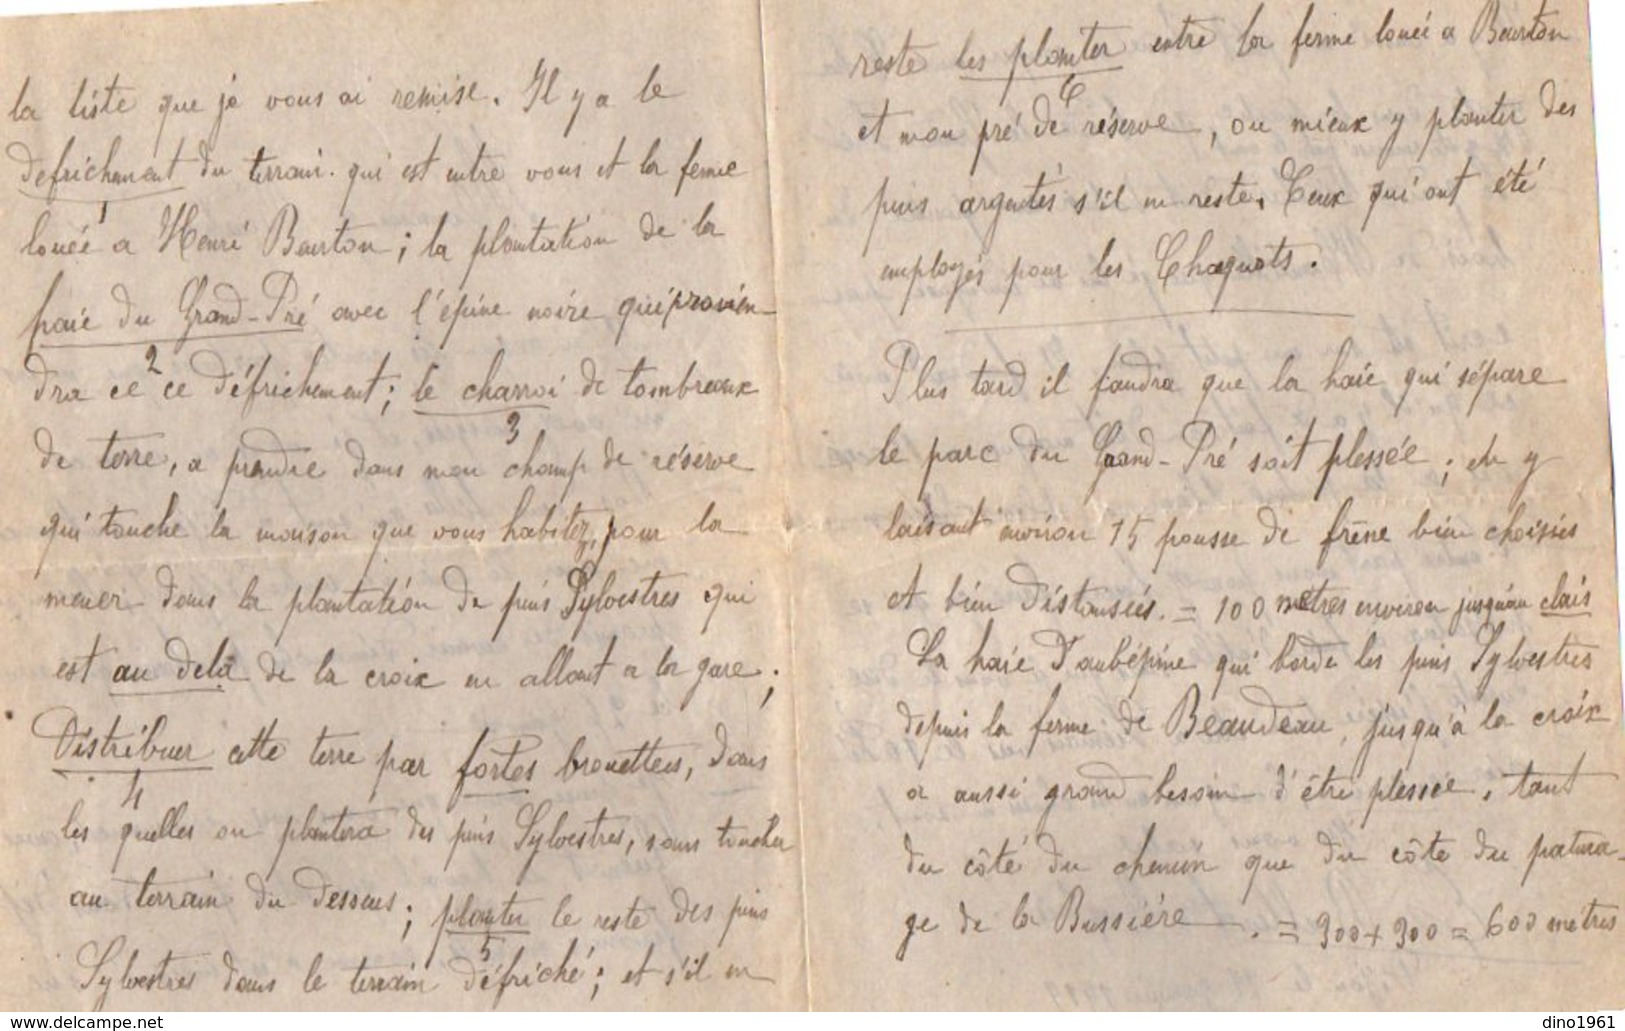 la liste que je vous ai remise. Il y a le
défrichement du terrain. qui est entre vous et la ferme
1
louée a Henri Baurton ; la plantation de la
haie du Grand-Pré avec l'épine noire qui provien-
2
dra ce ce défrichement ; le charroi de tombreaux
3
de terre, a prendre dans mon champ de réserve
qui touche la maison que vous habitez, pour la
mener dans la plantation de pins Sylvestres qui
est au delà de la croix en allant a la gare ;
Distribuer cette terre par fortes brouettees, dans
4
les quelles on plantera des pins Sylvestres, sans toucher
au terrain du dessous ; planter le reste des pins
5
Sylvestres dans le terrain défriché ; et s'il en
reste les planter entre la ferme louée a Baurton
6
et mon pré de réserve, ou mieux y planter des
pins argentés s'il en reste. Ceux qui ont été
employés pour les Chaquots.
Plus tard il faudra que la haie qui sépare
le parc du Grand-Pré soit plessée ; en y
laissant environ 15 pousse de frêne bien choisies
et bien distancées. = 100 mètres environ jusqu'au clais
La haie d'aubépine qui borde les pins Sylvestres
depuis la ferme de Beaudeau, jusqu'à la croix
a aussi grand besoin d'être plessée, tant
du côté du chemin que du côte du patura-
ge de la Bussiére. = 300 + 300 = 600 mètres
dino1961